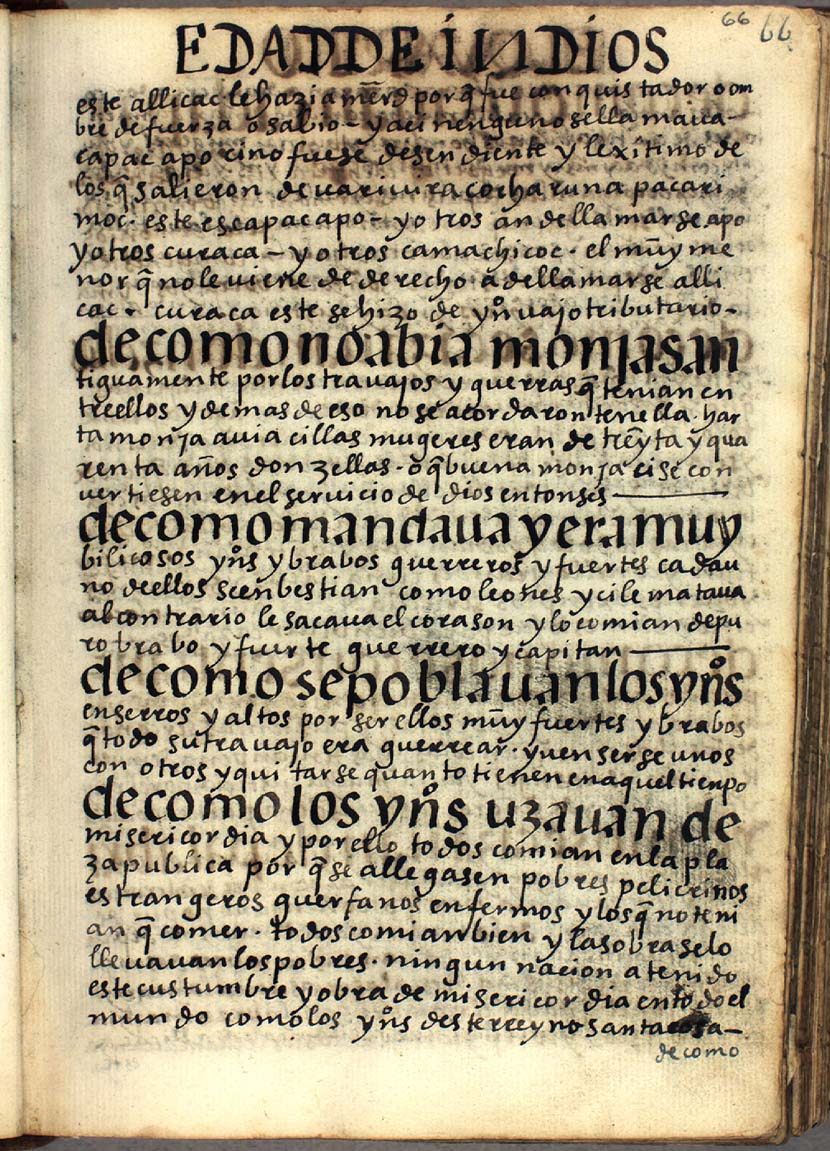 66 66
EDAD DE INDIOS
este allicac le hazia merẽd por q̃ fue conquistador o om
bre de fuerza o sabio - y aci nenguno se llamaua -
capac apo cino fuese desendiente y lexítimo de
los q̃ salieron de uari uiracocha runa pacari
moc. este es capac apo - y otros an de llamarse apo
y otros curaca - y otros camachicoc. el mũy me
nor q̃ no le viene de derecho a de llamarse alli
cac. curaca este se hizo de yn̊ uajo tributario -
de como no abia monjas an
tiguamente por los trauajos y guerras q̃ tenian en
tre ellos y demas de eso no se acordaron tenella. har
ta monja auia ci llas mugeres eran de treỹta y qua
renta años donzellas. o q̃ buena monja ci se con
uertiesen en el seruicio de dios entonses
de como mandaua y era muy
bilicosos yn̊s y brabos guerreros y fuertes cada u
no de ellos se enbestian como leones y ci le mataua
al contrario le sacaua el corason y lo comian de pu
ro brabo y fuerte guerrero y capitan
de como se poblauan los yn̊s
en serros y altos por ser ellos mũy fuertes y brabos
q̃ todo su trauajo era guerrear. y uenserse unos
con otros y quitarse quanto tienen en aquel tienpo
de como los yn̊s uzauan de
misericordia y por ello todos comian en la pla
za publica por q̃ se allegasen pobres peligrinos
estrangeros guerfanos enfermos y los q̃ no teni
an q̃ comer. todos comian bien y la sobra se lo
lleuauan los pobres. ningun nacion a tenido
este custumbre y obra de misericordia en todo el
mundo como los yn̊s deste rreyno santa cosa -
de como